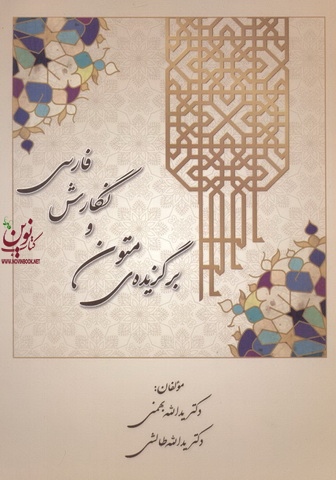 برگزیده‌ی متون
و
نگارش
فارسی
کتاب نوین
WWW.NOVINBOOK.NET
مؤلفان:
دکتر یدالله بهمنی
دکتر یدالله طالشی